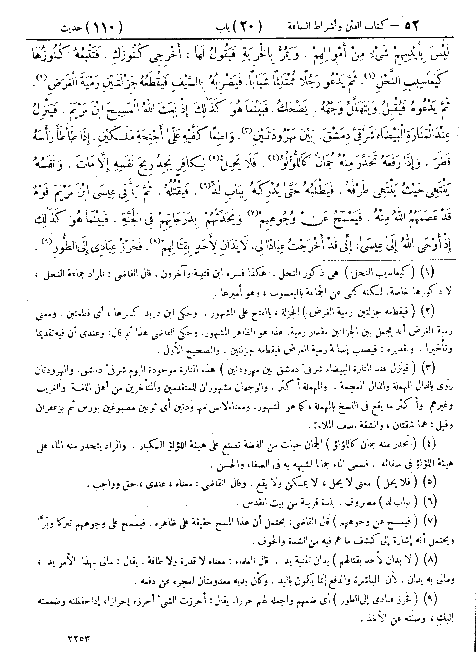 ٥٢ – كتاب الفتن وأشراط الساعة (٢٠) باب (١١٠) حديث
لَيْسَ بِأَيْدِيهِمْ شَيْءٌ مِنْ أَمْوَالِهِمْ . وَيَمُرُّ بِالْخَرِبَةِ فَيَقُولُ لَهَا : أَخْرِجِي كُنُوزَكِ . فَتَتْبَعُهُ كُنُوزُهَا
كَيَعَاسِيبِ النَّحْلِ (١). ثُمَّ يَدْعُو رَجُلًا مُمْتَلِئًا شَبَابًا . فَيَضْرِبُهُ بِالسَّيْفِ فَيَقْطَعُهُ جَزْلَتَيْنِ رَمْيَةَ الْغَرَضِ (٢).
ثُمَّ يَدْعُوهُ فَيُقْبِلُ وَيَتَهَلَّلُ وَجْهُهُ . يَضْحَكُ . فَبَيْنَمَا هُوَ كَذَلِكَ إِذْ بَعَثَ اللهُ الْمَسِيحَ ابْنَ مَرْيَمَ . فَيَنْزِلُ
عِنْدَ الْمَنَارَةِ الْبَيْضَاءِ شَرْقِيَّ دِمَشْقَ . بَيْنَ مَهْرُودَتَيْنِ (٣). وَاضِعًا كَفَّيْهِ عَلَى أَجْنِحَةِ مَلَكَيْنِ . إِذَا طَأْطَأَ رَأْسَهُ
قَطَرَ . وَإِذَا رَفَعَهُ تَحَدَّرَ مِنْهُ جُمَانٌ كَاللُّؤْلُؤِ (٤). فَلَا يَحِلُّ (٥) لِكَافِرٍ يَجِدُ رِيحَ نَفَسِهِ إِلَّا مَاتَ . وَنَفَسُهُ
يَنْتَهِي حَيْثُ يَنْتَهِي طَرْفُهُ . فَيَطْلُبُهُ حَتَّى يُدْرِكَهُ بِبَابِ لُدٍّ (٦). فَيَقْتُلُهُ . ثُمَّ يَأْتِي عِيسَى ابْنَ مَرْيَمَ قَوْمٌ
قَدْ عَصَمَهُمُ اللهُ مِنْهُ . فَيَمْسَحُ عَنْ وُجُوهِهِمْ (٧) وَيُحَدِّثُهُمْ بِدَرَجَاتِهِمْ فِي الْجَنَّةِ . فَبَيْنَمَا هُوَ كَذَلِكَ
إِذْ أَوْحَى اللهُ إِلَى عِيسَى : إِنِّي قَدْ أَخْرَجْتُ عِبَادًا لِي ، لَا يَدَانِ لِأَحَدٍ بِقِتَالِهِمْ (٨). فَحَرِّزْ عِبَادِي إِلَى الطُّورِ (٩)
(١) (كيعاسيب النحل) هي ذكور النحل . هكذا فسره ابن قتيبة وآخرون . قال القاضي : المراد جماعة النحل ،
لا ذكورها خاصة . لكنه كنى عن الجماعة باليعسوب ، وهو أميرها .
(٢) (فيقطعه جزلتين رمية الغرض) الجزلة ، بالفتح على المشهور . وحكى ابن دريد كسرها ، أي قطعتين . ومعنى
رمية الغرض أنه يجعل بين الجزلتين مقدار رمية . هذا هو الظاهر المشهور . وحكى القاضي هذا ثم قال : وعندي أن فيه تقديما
وتأخيرا . وتقديره : فيصيب إصابة رمية الغرض فيقطعه جزلتين . والصحيح الأول .
(٣) (فينزل عند المنارة البيضاء شرقي دمشق بين مهرودتين) هذه المنارة موجودة اليوم شرقي دمشق . والمهرودتان
روي بالدال المهملة والذال المعجمة . والمهملة أكثر ، والوجهان مشهوران للمتقدمين والمتأخرين من أهل اللغة والغريب
وغيرهم . وأكثر ما يقع في النسخ بالمهملة ، كما هو المشهور . ومعناه لابس مهرودتين أي ثوبين مصبوغين بورس ثم بزعفران
وقيل : هما شقتان ، والشقة نصف الملاءة .
(٤) (تحدر منه جمان كاللؤلؤ) الجمان حبات من الفضة تصنع على هيئة اللؤلؤ الكبار . والمراد يتحدر منه الماء على
هيئة اللؤلؤ في صفائه . فسمى الماء جمانا لشبهه به في الصفاء والحسن .
(٥) (فلا يحل) معنى لا يحل ، لا يمكن ولا يقع . وقال القاضي : معناه ، عندي ، حق وواجب .
(٦) (بباب لد) مصروف . بلدة قريبة من بيت المقدس .
(٧) (فيمسح عن وجوههم) قال القاضي : يحتمل أن هذا المسح حقيقة على ظاهره . فيمسح على وجوههم تبركا وبرًّا
ويحتمل أنه إشارة إلى كشف ما هم فيه من الشدة والخوف .
(٨) (لا يدان لأحد بقتالهم) يدان تثنية يد . قال العلماء : معناه لا قدرة ولا طاقة . يقال : مالي بهذا الأمر يد ،
ومالي به يدان . لأن المباشرة والدفع إنما يكون باليد . وكأن يديه معدومتان لعجزه عن دفعه .
(٩) (فحرز عبادي إلى الطور) أي ضمهم واجعله لهم حرزا . يقال : أحرزت الشيء أحرزه إحرازا ، إذا حفظته وضممته
إليك ، وصنته عن الأخذ .
٢٢٥٣